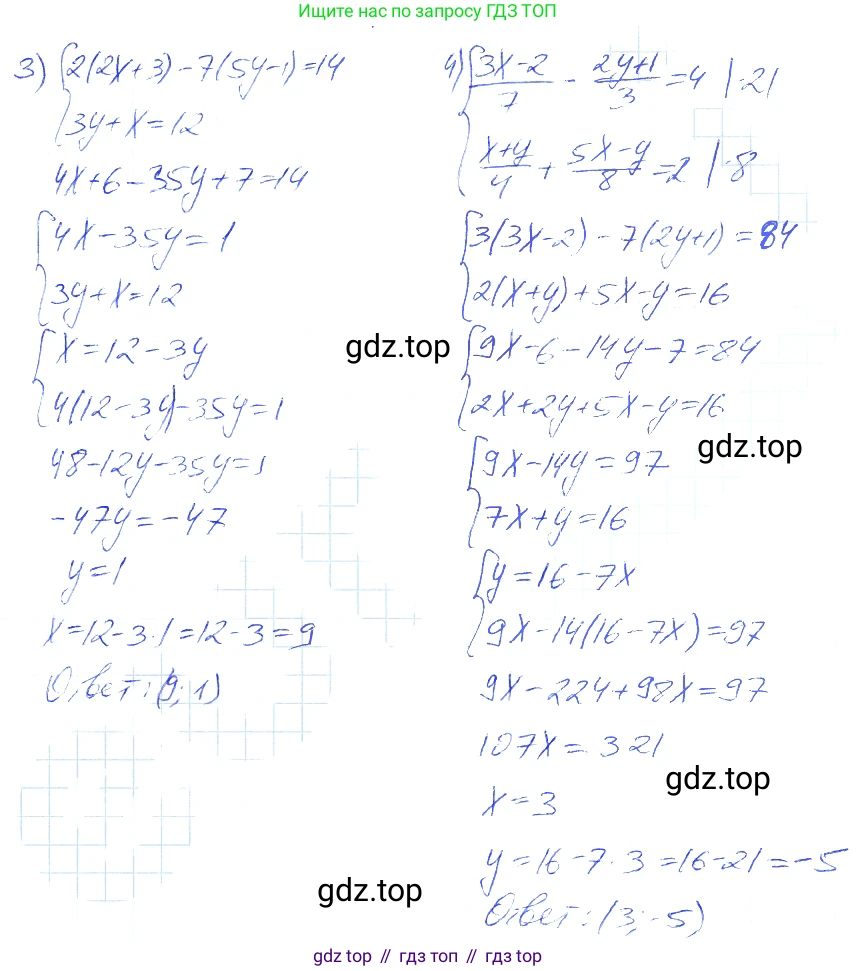 Ищите нас по запросу ГДЗ ТОП
3) {2(2x+3)-7(5y-1)=14
3y+x=12
4x+6-35y+7=14
{4x-35y=1
3y+x=12
{x=12-3y
4(12-3y)-35y=1
48-12y-35y=1
-47y=-47
y=1
x=12-3·1=12-3=9
Ответ: (9; 1)
4) {(3x-2)/7 - (2y+1)/3 =4 |·21
(x+y)/4 + (5x-y)/8 =2 |·8
{3(3x-2)-7(2y+1)=84
2(x+y)+5x-y=16
{9x-6-14y-7=84
2x+2y+5x-y=16
{9x-14y=97
7x+y=16
{y=16-7x
9x-14(16-7x)=97
9x-224+98x=97
107x=321
x=3
y=16-7·3=16-21=-5
Ответ: (3; -5)
gdz.top
gdz.top
gdz.top
gdz.top
gdz top // гдз топ // gdz top